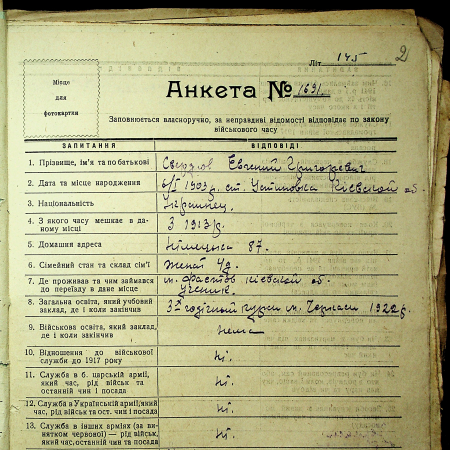 Літ 145 2
Місце
для
фотокартки
Анкета № 1691.
Заповнюється власноручно, за неправдиві відомості відповідає по закону
військового часу
ЗАПИТАННЯ ВІДПОВІДІ
1. Прізвище, ім'я та по батькові Свердлов Евгений Григорьевич
2. Дата та місце народження 6/I 1903 р. ст. Устиновка Київской об.
3. Національність Украинец.
4. З якого часу мешкає в да-
ному місці З 1913 р.
5. Домашня адреса 87.
6. Сімейний стан та склад сім'ї Женат
7. Де проживав та чим займався
до переїзду в дане місце м. Фастов Київской об.
ученик
8. Загальна освіта, який учбовий
заклад, де і коли закінчив 3х годічний курси м. Черкаси 1922 р.
9. Військова освіта, який заклад,
де і коли закінчив нема
10. Відношення до військової
служби до 1917 року ні.
11. Служба в б. царській армії,
який час, рід військ та
останній чин і посада ні.
12. Служба в Українській армії, який
час, рід військ та ост. чин і посада ні.
13. Служба в інших арміях (за ви-
нятком червоної) — рід військ,
який час, останній чин та посада ні.